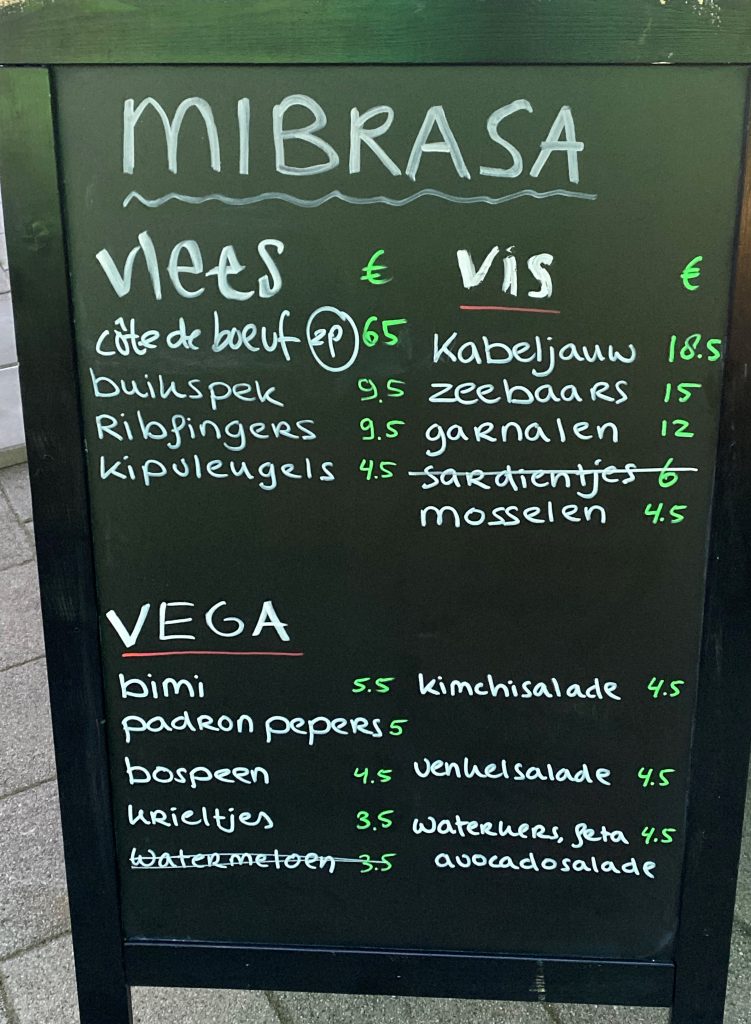 MIBRASA
vlees €
côte de boeuf 2p 65
buikspek 9.5
Ribfingers 9.5
kipvleugels 4.5
vis €
Kabeljauw 18.5
zeebaars 15
garnalen 12
sardientjes 6
mosselen 4.5
VEGA
bimi 5.5
padron pepers 5
bospeen 4.5
krieltjes 3.5
watermeloen 3.5
kimchisalade 4.5
venkelsalade 4.5
waterkers, feta 4.5
avocadosalade